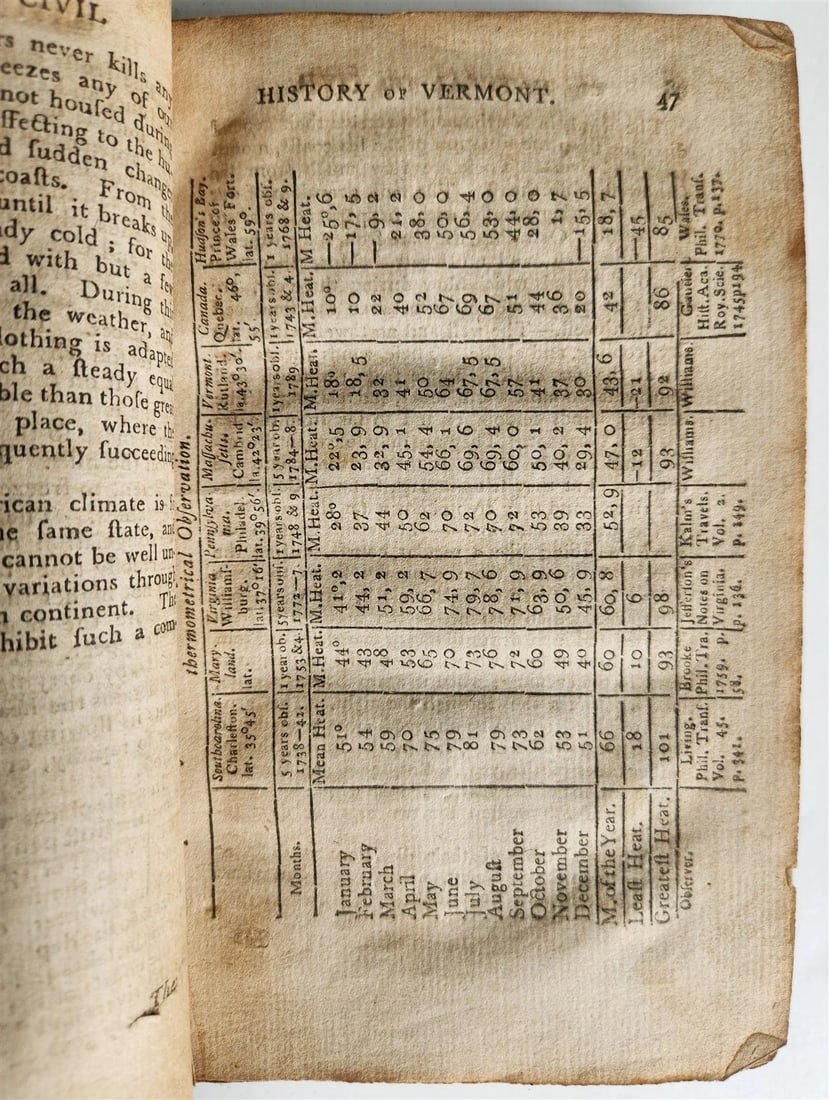 CIVIL
rs never kills any
eezes any of our
not houſed durin
ffecting to the hu
d ſudden change
coaſts. From the
until it breaks up
ady cold ; for the
d with but a few
all. During the
the weather, and
lothing is adapted
ch a ſteady equa
ble than thoſe grea
place, where th
quently ſucceedin
rican climate is
ne ſame ſtate, an
cannot be well un-
variations throug
n continent. Th
hibit ſuch a com
The
HISTORY OF VERMONT. 47
thermometrical Obſervation.
Southcarolina. Mary- Virginia Pennſylva Maſſachu- Vermont. Canada. Hudſon's Bay.
Charleſton. land. Williamſ- nia. ſetts. Rutland, Quebec. Prince of
lat. 35°45′ lat. burg. Philadel. Cambrid. la.43°30′. lat. 46°, Wales Fort.
lat. 37°16′ lat. 39°56′ la.42°23′ 55′ lat. 59°.
Months. 5 years obſ. 1 year ob. 5 years obſ. 1 years obſ. 5 year ob. 1 years obſ. 1 years obſ. 1 years obſ.
1738—42. 1753 &4. 1772—7. 1748 & 9. 1784—8. 1789 1743 & 4. 1768 & 9.
Mean Heat. M.Heat. M.Heat. M.Heat. M.Heat. M.Heat. M.Heat. M Heat.
January 51° 44° 41°,2 28° 22°,5 18° 10° —25°,6
February 54 43 44, 2 37 23, 9 18, 5 10 —17, 5
March 59 48 51, 2 44 32, 9 32 22 —9, 2
April 70 53 59, 2 50 45, 1 41 40 21, 2
May 75 65 66, 7 62 54, 4 50 52 38, 0
June 79 70 74, 9 70 66, 1 64 67 50, 0
July 81 73 79, 7 72 69, 6 67, 5 69 56, 4
Auguſt 79 76 78, 6 70 69, 4 67, 5 67 53, 0
September 73 72 71, 9 72 60, 0 57 51 44, 0
October 62 60 63, 9 53 50, 1 41 44 28, 0
November 53 49 50, 6 39 40, 2 37 36 1, 7
December 51 40 45, 9 33 29, 4 30 20 —15, 5
M. of the Year. 66 60 60, 8 52, 9 47, 0 43, 6 42 18, 7
Leaſt Heat. 18 10 6 —12 —21 —45
Greateſt Heat. 101 93 98 93 92 86 85
Obſerver. Living. Brooke Jefferſon's Kalm's Williams. Williams. Gautier Wales.
Phil. Tranſ. Phil. Tra. Notes on Travels. Hiſt. Aca. Phil. Tranſ.
Vol. 45. 1759. p. Virginia. Vol. 2. Roy. Scie. 1770. p.137.
p. 341. 58. p. 136. p. 149. 1745p194